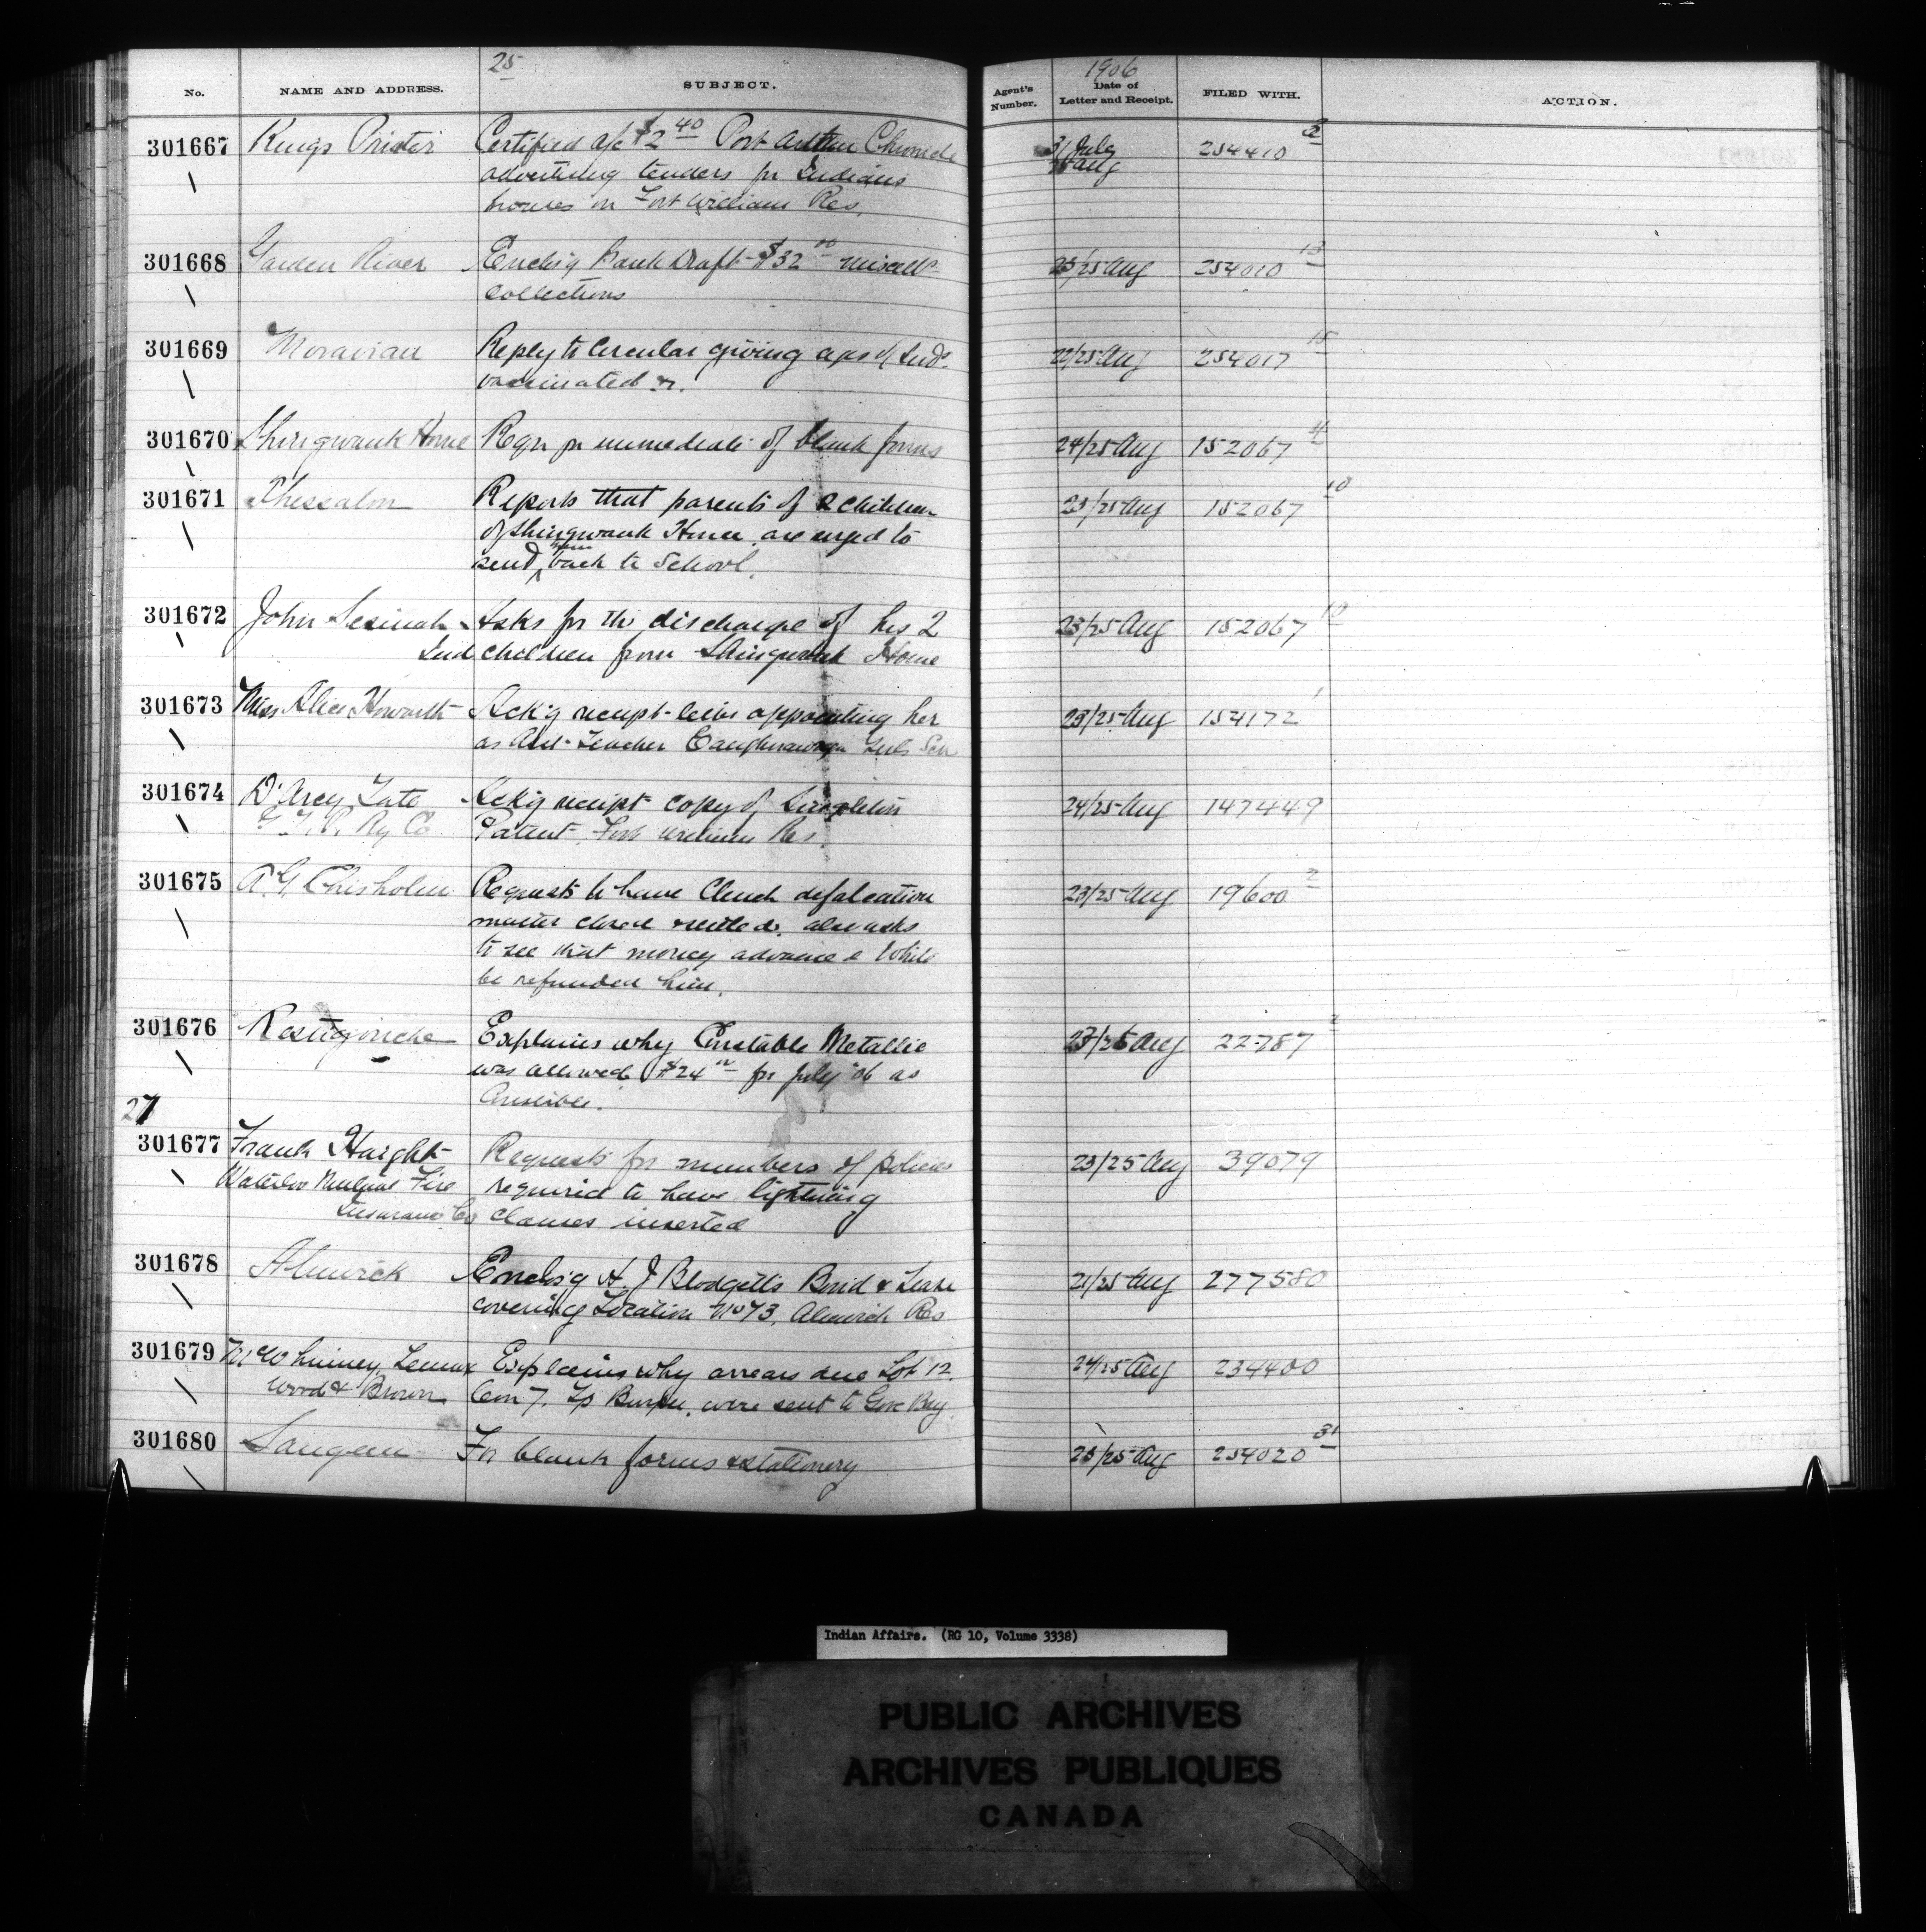 25
1906
No. NAME AND ADDRESS. SUBJECT. Agent's Number. Date of Letter and Receipt. FILED WITH. ACTION.
301667 Kings Printer Certified a/c $2 40 Port Arthur Chronicle 31 July 254410
advertising tenders for Indians 25 Aug
houses on Fort William Res.
301668 Garden River Enclsg Bank Draft $32 00 miscells 25/25 Aug 254010 13
collections
301669 Moravian Reply to Circular giving of Inds. 22/25 Aug 254017 15
vaccinated &c.
301670 Shingwauk Home Reqn for immediate of blank forms 24/25 Aug 152067
301671 Thessalon Reports that parents of 2 children 23/25 Aug 152067 10
of Shingwauk Home are urged to
send them back to School.
301672 John Asks for the discharge of his 2 23/25 Aug 152067 10
Ind children from Shingwauk Home
301673 Miss Alice Howarth Ack'g receipt letter appointing her 23/25 Aug 154172 1
as Asst. Teacher Caughnawaga Sch
301674 D'Arcy Tate Ack'g receipt copy of 24/25 Aug 147449
G. T. P. Ry Co Patent, Fort William Res.
301675 A. G. Chisholm Requests to have Clench defalcation 23/25 Aug 19600 2
matter closed & settled, also asks
to see that money advanced White
be refunded him.
301676 Restigouche Explains why Constable Metallic 23/25 Aug 22787 2
was allowed $24 for July '06 as
Constable.
27
301677 Frank Haight Requests for numbers of policies 23/25 Aug 39079
Waterloo Mutual Fire required to have lightning
Insurance Co clauses inserted
301678 Alnwick Enclsg H. J Blodgett's Bond & Lease 21/25 Aug 277580
covering Location No 73, Alnwick Res
301679 McWhinney, Lennox Explains why arrears due Lot 12. 24/25 Aug 234400
Wood & Brown Con 7. Tp Burpee, were sent to Gore Bay
301680 Saugeen For blank forms & stationery 23/25 Aug 254020 31
Indian Affairs. (RG 10, Volume 3338)
PUBLIC ARCHIVES
ARCHIVES PUBLIQUES
CANADA